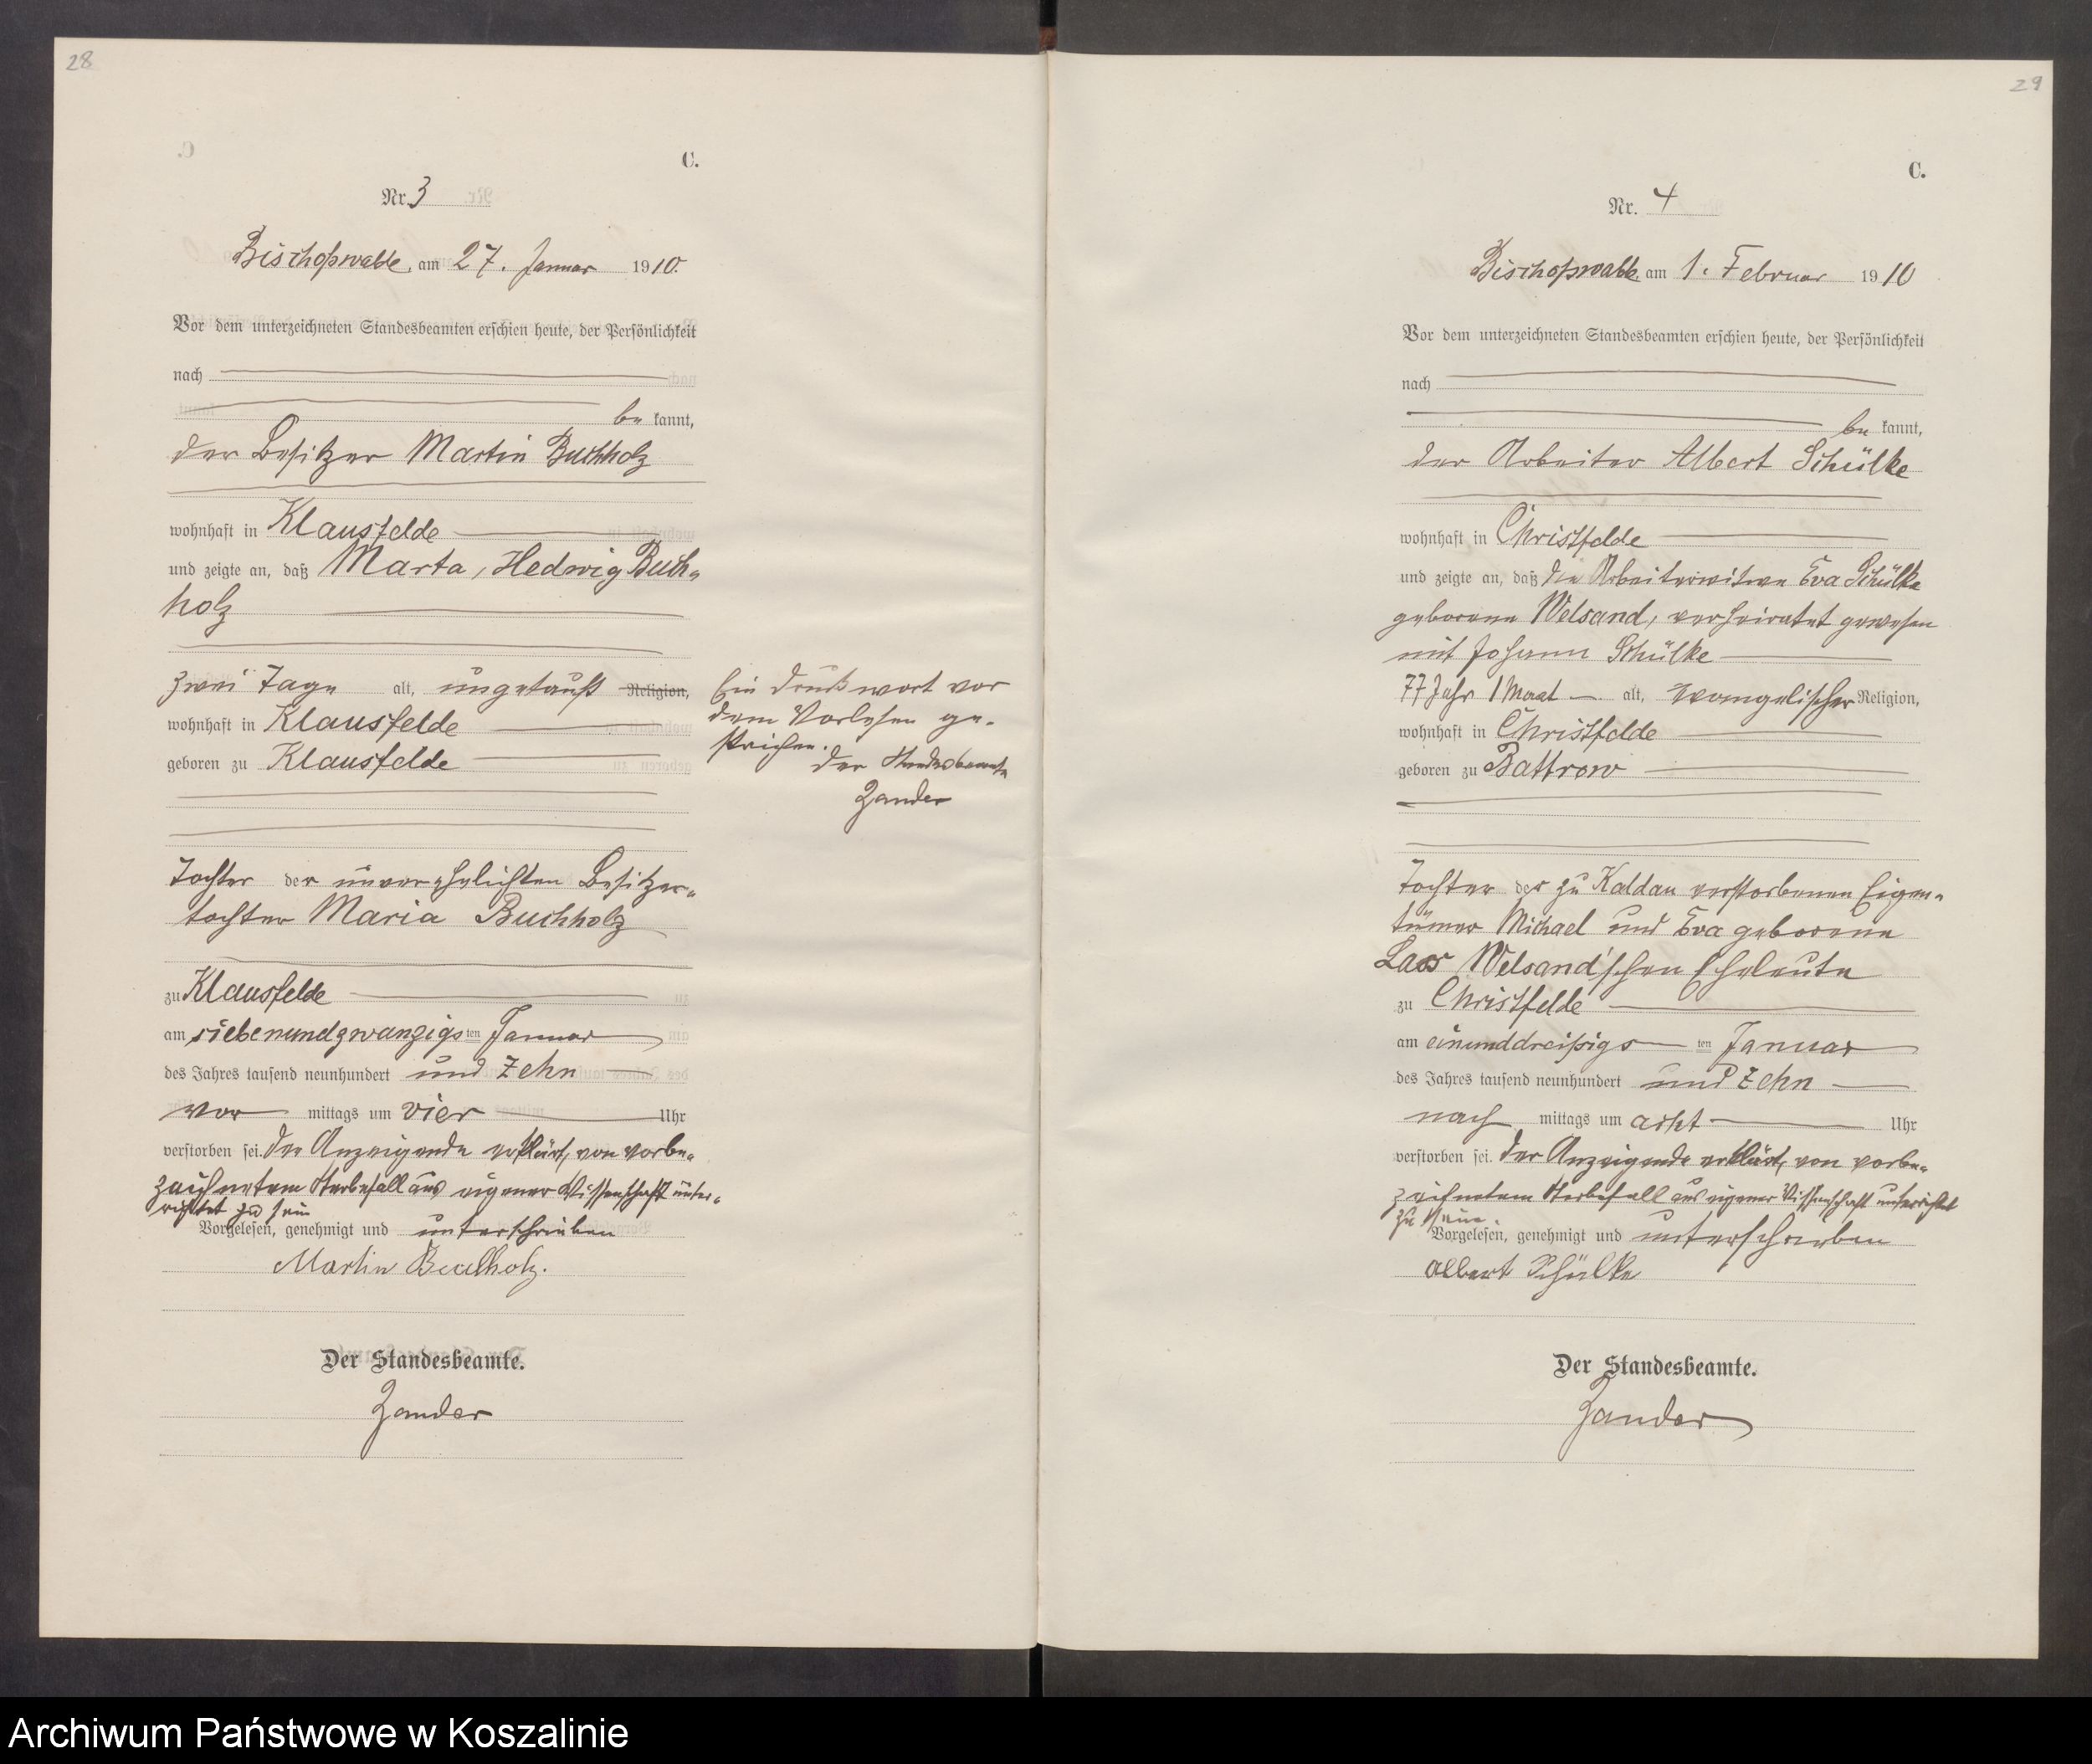 28
C.
Nr. 3
Bischofswalde, am 27. Januar 1910.
Vor dem unterzeichneten Standesbeamten erschien heute, der Persönlichkeit
nach
be kannt,
der Besitzer Martin Buchholz
wohnhaft in Klausfelde
und zeigte an, daß Marta, Hedwig Buch-
holz
zwei Tage alt, ungetauft Religion,
wohnhaft in Klausfelde
geboren zu Klausfelde
Tochter der unverehelichten Besitzer-
tochter Maria Buchholz
zu Klausfelde
am siebenundzwanzigsten Januar
des Jahres tausend neunhundert und zehn
vor mittags um vier Uhr
verstorben sei. Der Anzeigende erklärt, von vorbe-
zeichnetem Sterbefall aus eigener Wissenschaft unter-
richtet zu sein
Vorgelesen, genehmigt und unterschrieben
Martin Buchholz.
Der Standesbeamte.
Zander
Ein Druckwort vor
dem Vorlesen ge-
strichen.
Der Standesbeamte
Zander
29
C.
Nr. 4
Bischofswalde am 1. Februar 1910
Vor dem unterzeichneten Standesbeamten erschien heute, der Persönlichkeit
nach
be kannt,
der Arbeiter Albert Schülke
wohnhaft in Christfelde
und zeigte an, daß die Arbeiterwitwe Eva Schülke
geborene Welsand, verheiratet gewesen
mit Johann Schülke
77 Jahr 1 Monat alt, evangelischer Religion,
wohnhaft in Christfelde
geboren zu Battrow
Tochter der zu Kaldau verstorbenen Eigen-
tümer Michael und Eva geborene
Welsand'schen Eheleute
zu Christfelde
am einunddreißigsten Januar
des Jahres tausend neunhundert und zehn
nach mittags um acht Uhr
verstorben sei. Der Anzeigende erklärt, von vorbe-
zeichnetem Sterbefall aus eigener Wissenschaft unterrichtet
zu sein.
Vorgelesen, genehmigt und unterschrieben
Albert Schülke
Der Standesbeamte.
Zander
Archiwum Państwowe w Koszalinie